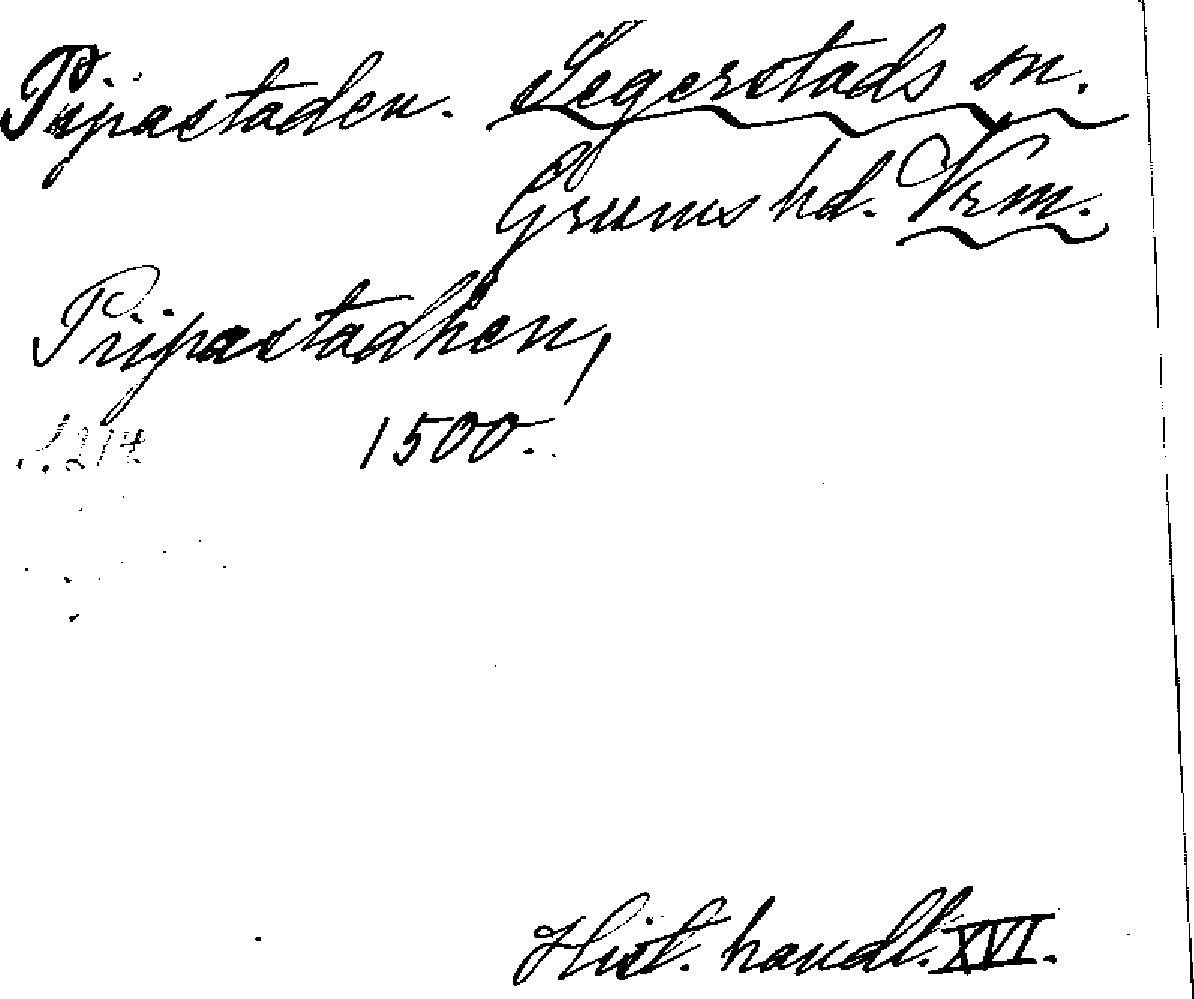 Pripastaden. Segerstads sn.
Grums hd. Vrm.
Pripastadhen,
S. 214 1500.
Hist. handl. XVI.